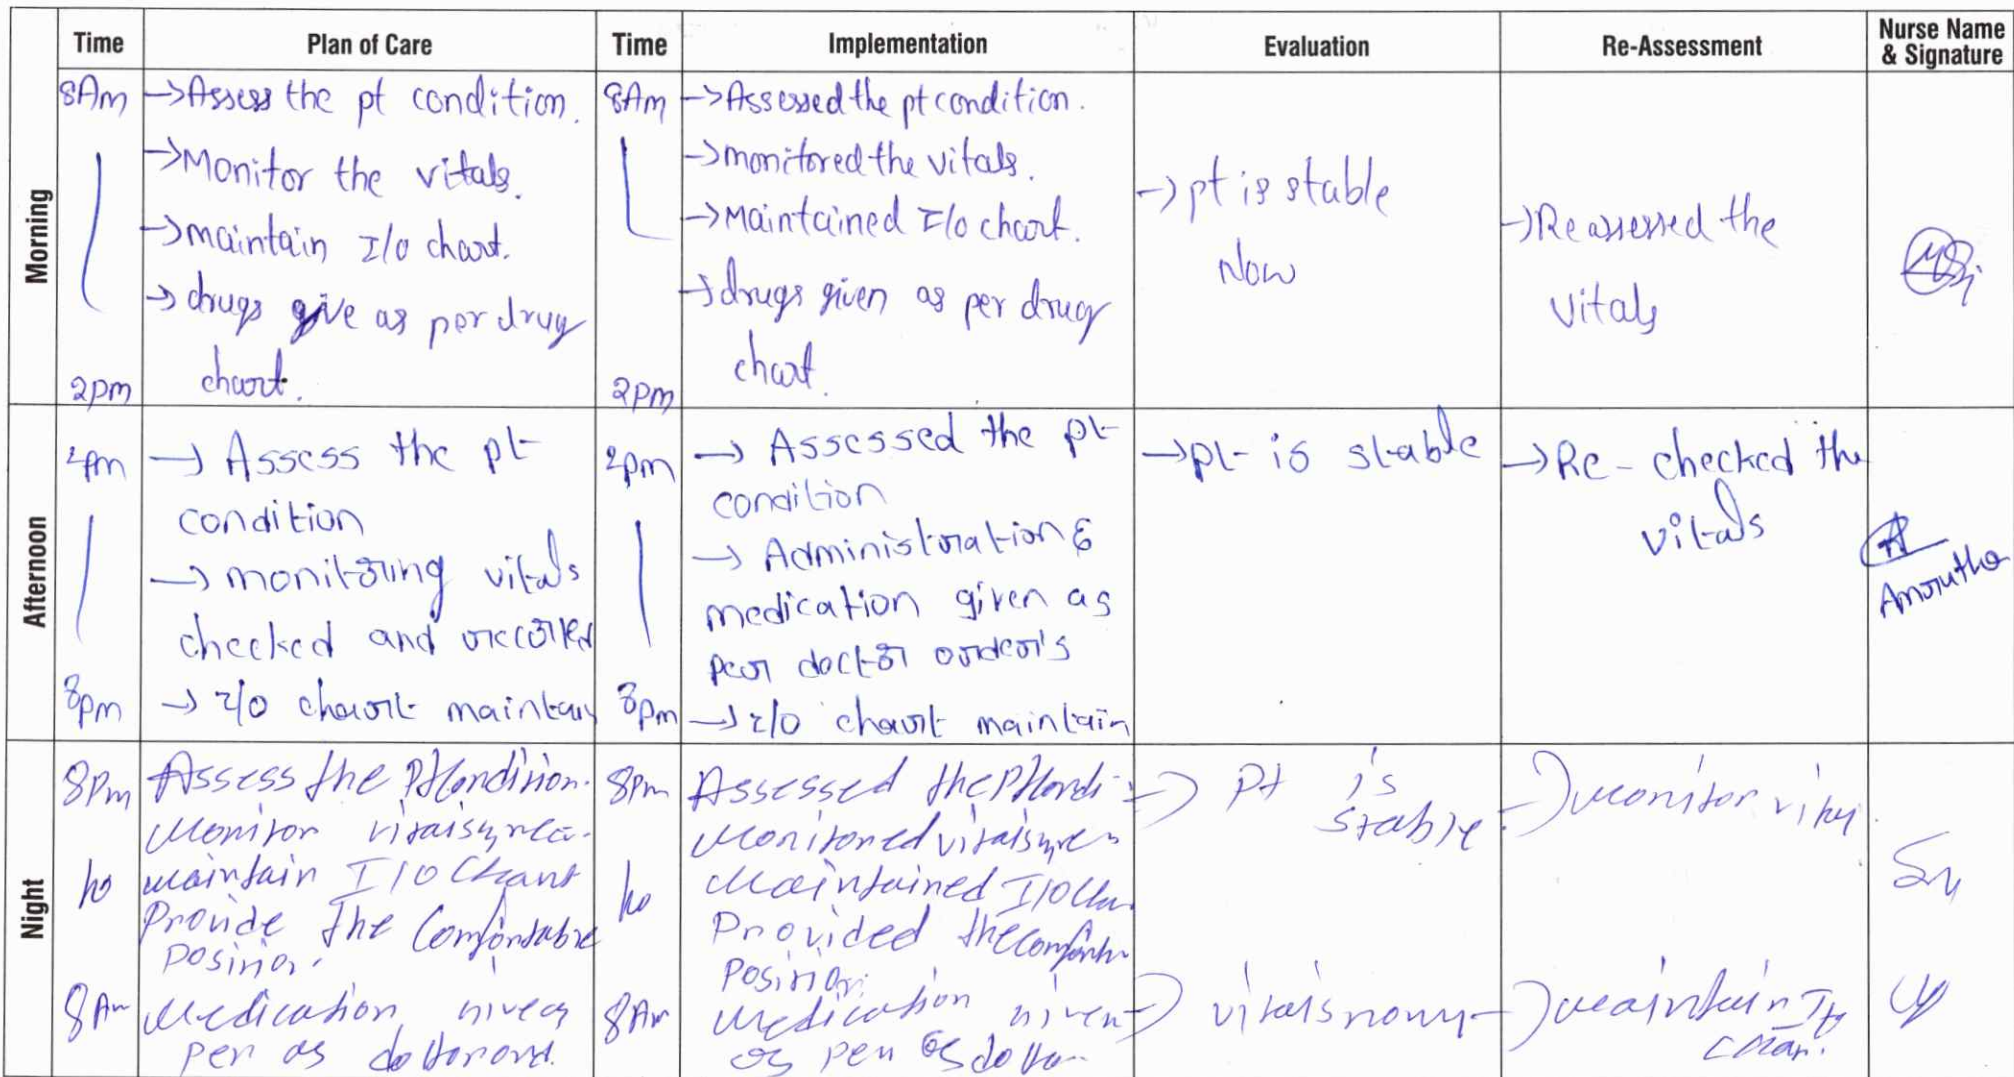 Time Plan of Care Time Implementation Evaluation Re-Assessment Nurse Name & Signature
Morning
8Am
2pm
→Assess the pt condition.
→Monitor the vitals.
→maintain I/O chart.
→drugs give as per drug
chart.
8Am
2pm
→Assessed the pt condition.
→monitored the vitals.
→Maintained I/O chart.
→drugs given as per drug
chart.
→pt is stable
Now
→Reassessed the
vitals
Afternoon
2pm
8pm
→ Assess the pt
condition
→ monitoring vitals
checked and
→ I/O chart maintain
2pm
8pm
→ Assessed the pt
condition
→ Administration &
medication given as
per doctor order's
→ I/O chart maintain
→pt is stable
→Re-checked the
vitals
Night
8Pm
to
8Am
Assess the Pt condition.
Monitor
maintain I/O Chart
Provide the Comfortable
Position.
Medication
per as
8Pm
to
8Am
Assessed the Pt
Monitored
Maintained I/O
Provided the
Position.
Medication
as per as
→ Pt is
stable.
→ monitor
→ vitals
→ maintain